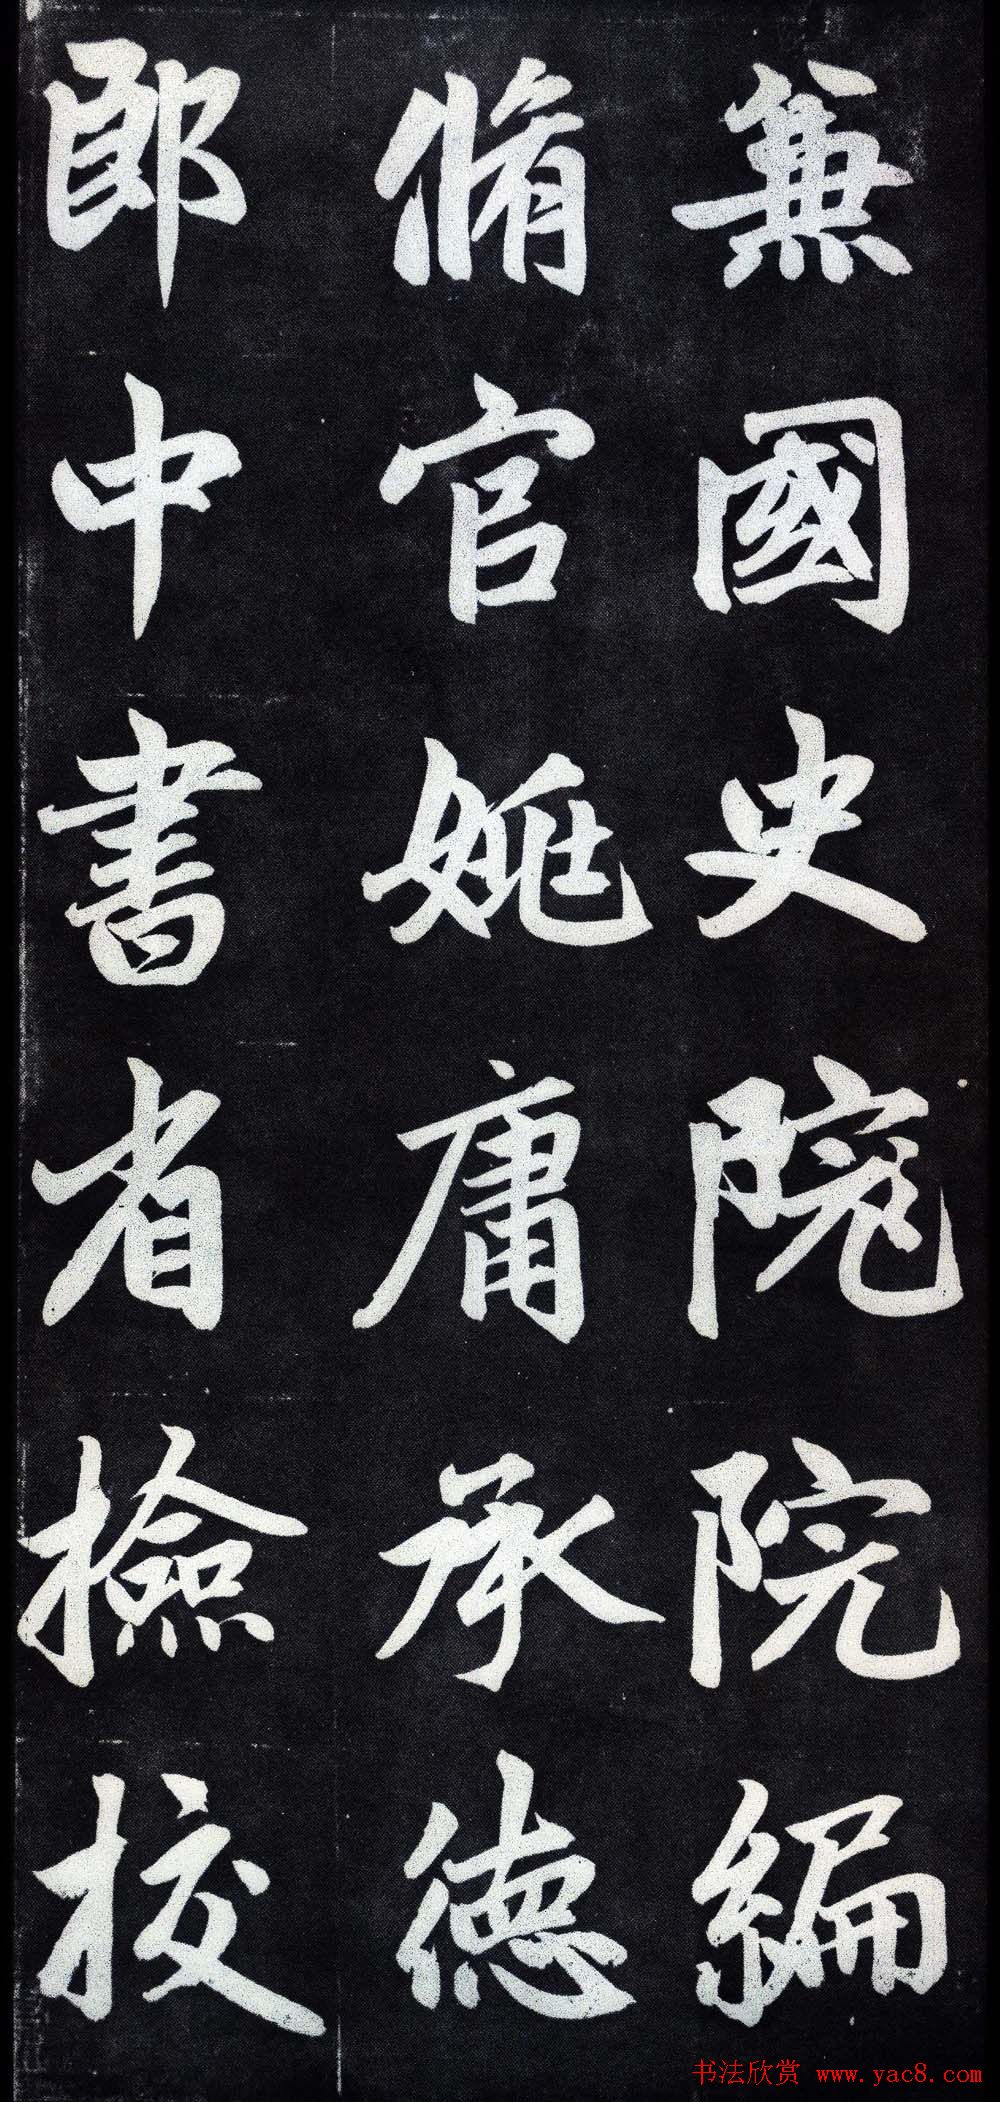 兼國史院院編
脩官姚庸承德
郎中書省撿校
书法欣赏 www.yac8.com